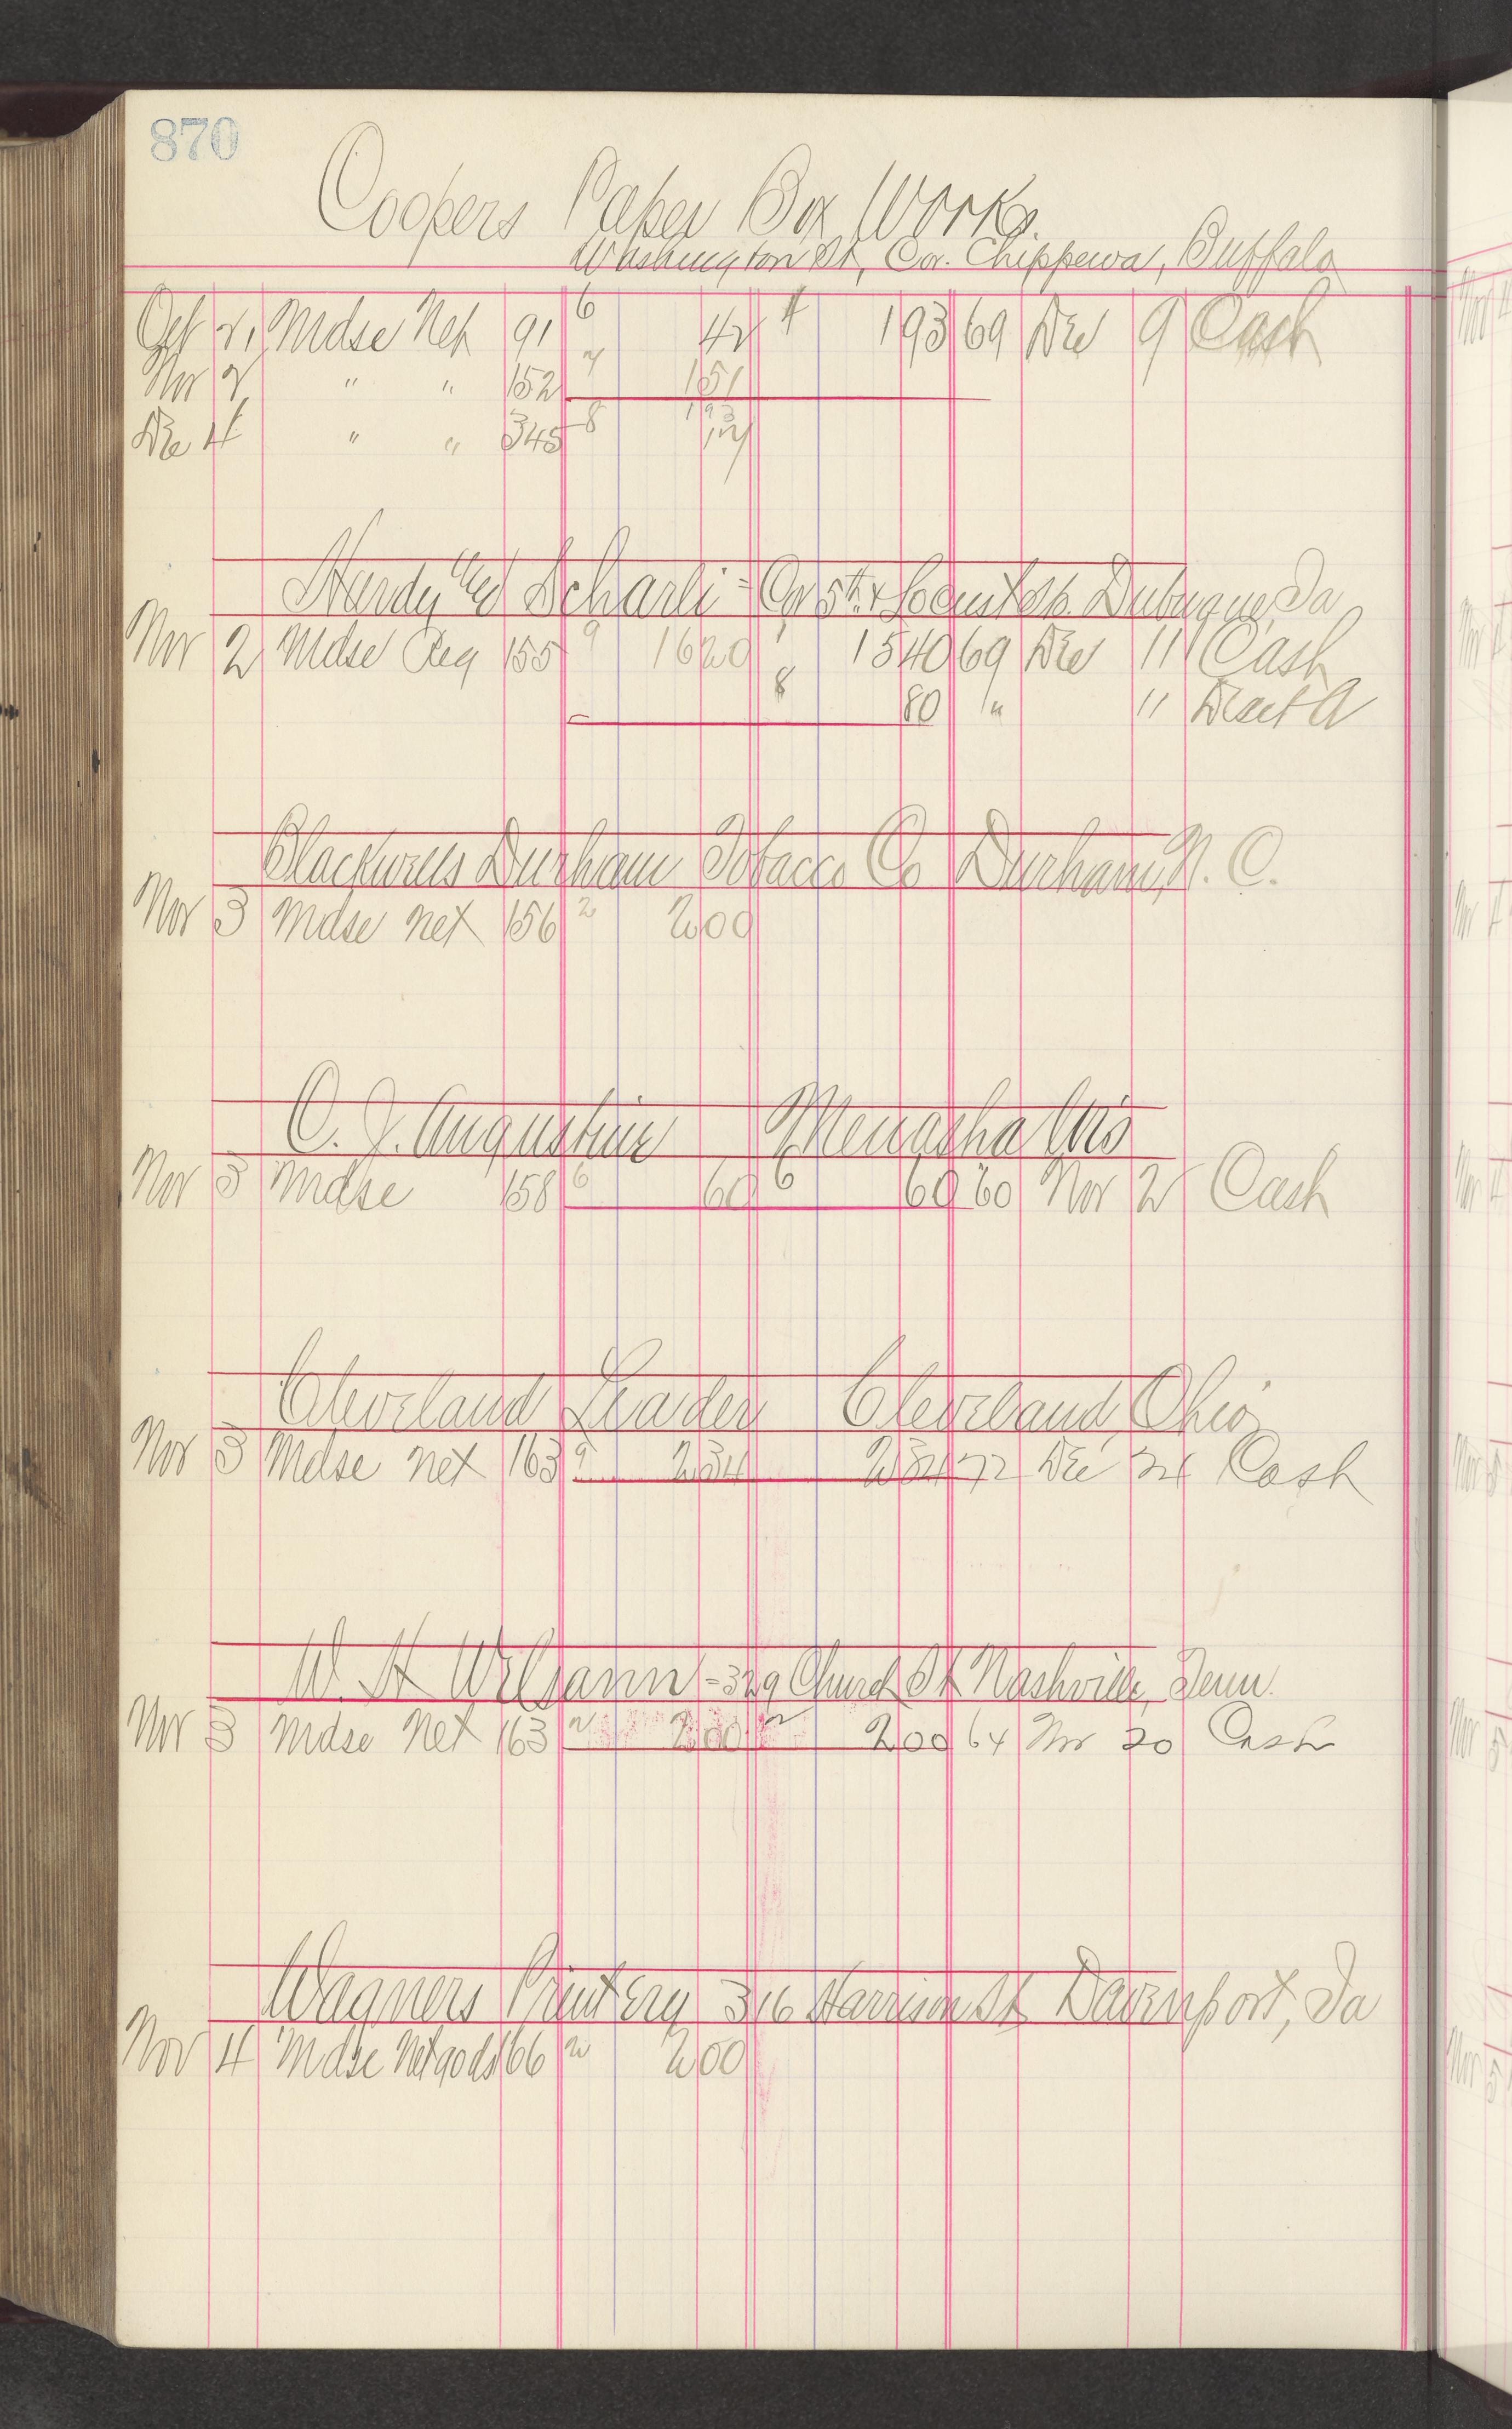 870
Coopers Paper Box Works.
Washington St, Cor. Chippewa, Buffalo
Oct 21 Mdse Net 91 6 42 4 193 69 Dec 9 Cash
Nov 2 " " 152 7 151
193
Dec 4 " " 345 8
Hardy & Scharli - Cor 5th & Locust Sts. Dubuque, Ia
Nov 2 Mdse Reg 155 9 1620 1 1540 69 Dec 11 Cash
8 80 " 11 Disct A
Blackwells Durham Tobacco Co Durham, N. C.
Nov 3 Mdse net 156 2 200
C. J. Augustin Menasha Wis
Nov 3 Mdse 158 6 60 6 60 60 Nov 2 Cash
Cleveland Leader Cleveland, Ohio,
Nov 3 Mdse net 163 234 234 72 Dec 24 Cash
W. H - 329 Church St Nashville, Tenn.
Nov 3 Mdse Net 163 2 200 2 200 64 Nov 20 Cash
Wagners Printery 316 Harrison St Davenport, Ia
Nov 4 Mdse Net gods 166 2 200